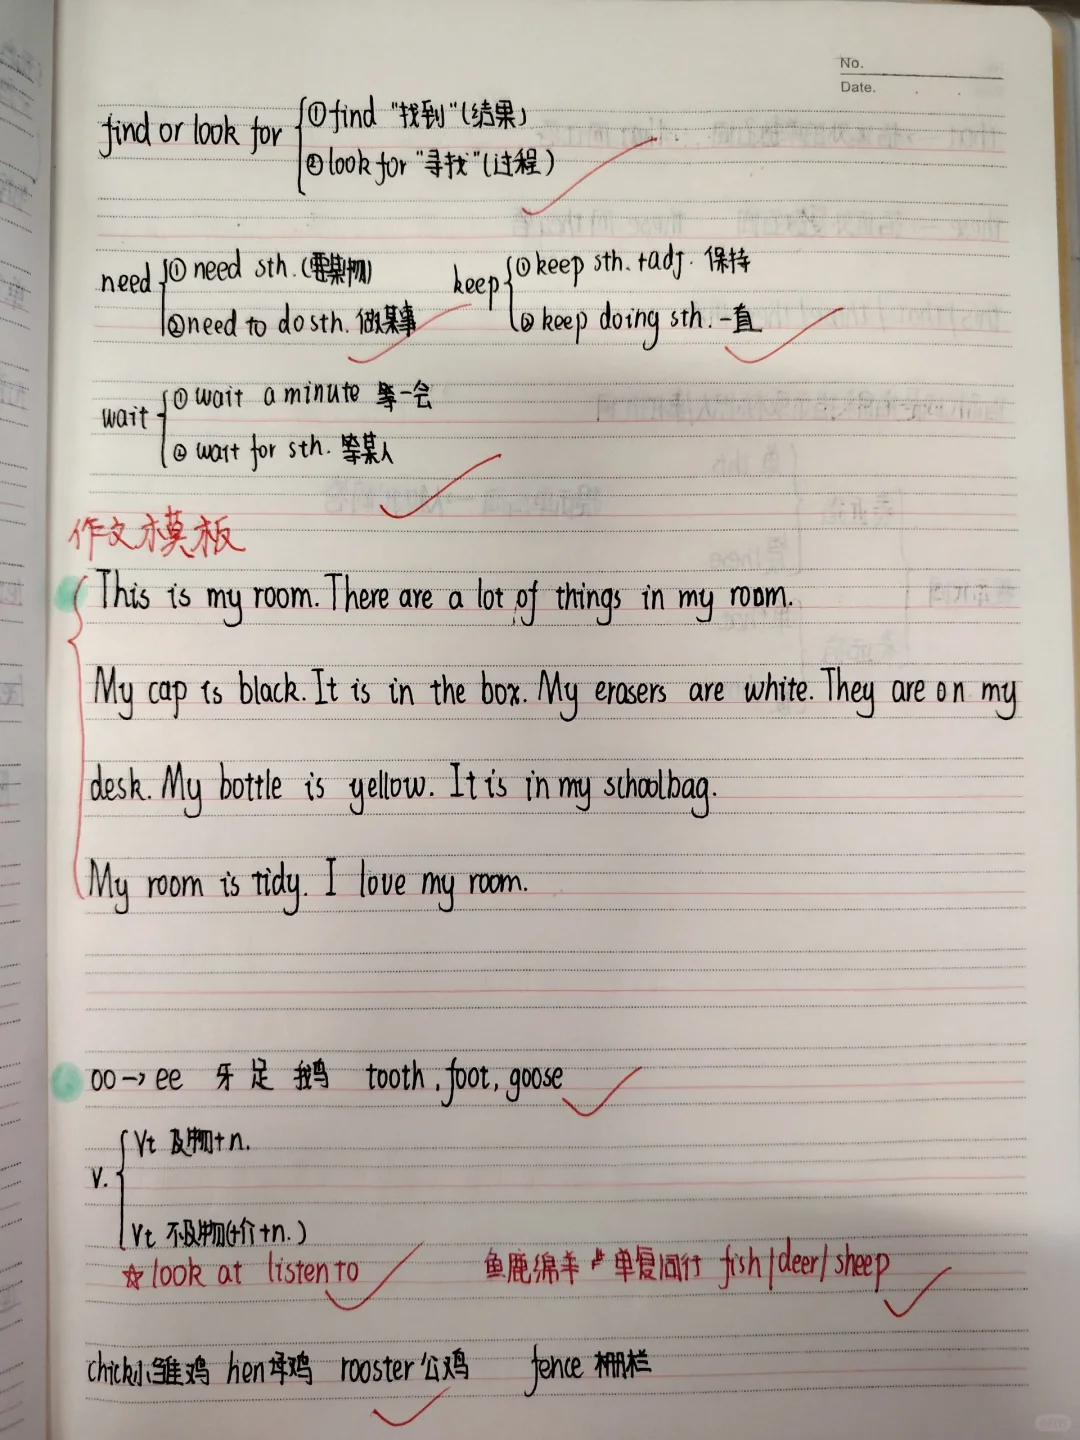 No.
Date.
find or look for ① find "找到"(结果)
② look for "寻找"(过程)
need ① need sth. (需某物) keep ① keep sth. +adj. 保持
② need to do sth. 做某事 ② keep doing sth. 一直
wait ① wait a minute 等一会
② wait for sth. 等某人
作文模板
This is my room. There are a lot of things in my room.
My cap is black. It is in the box. My erasers are white. They are on my
desk. My bottle is yellow. It is in my schoolbag.
My room is tidy. I love my room.
oo → ee 牙 足 鹅 tooth, foot, goose
v. Vt 及物+n.
Vt 不及物(+介+n.)
☆ look at listen to 鱼鹿绵羊 单复同行 fish/deer/sheep
chick小雏鸡 hen母鸡 rooster公鸡 fence 栅栏